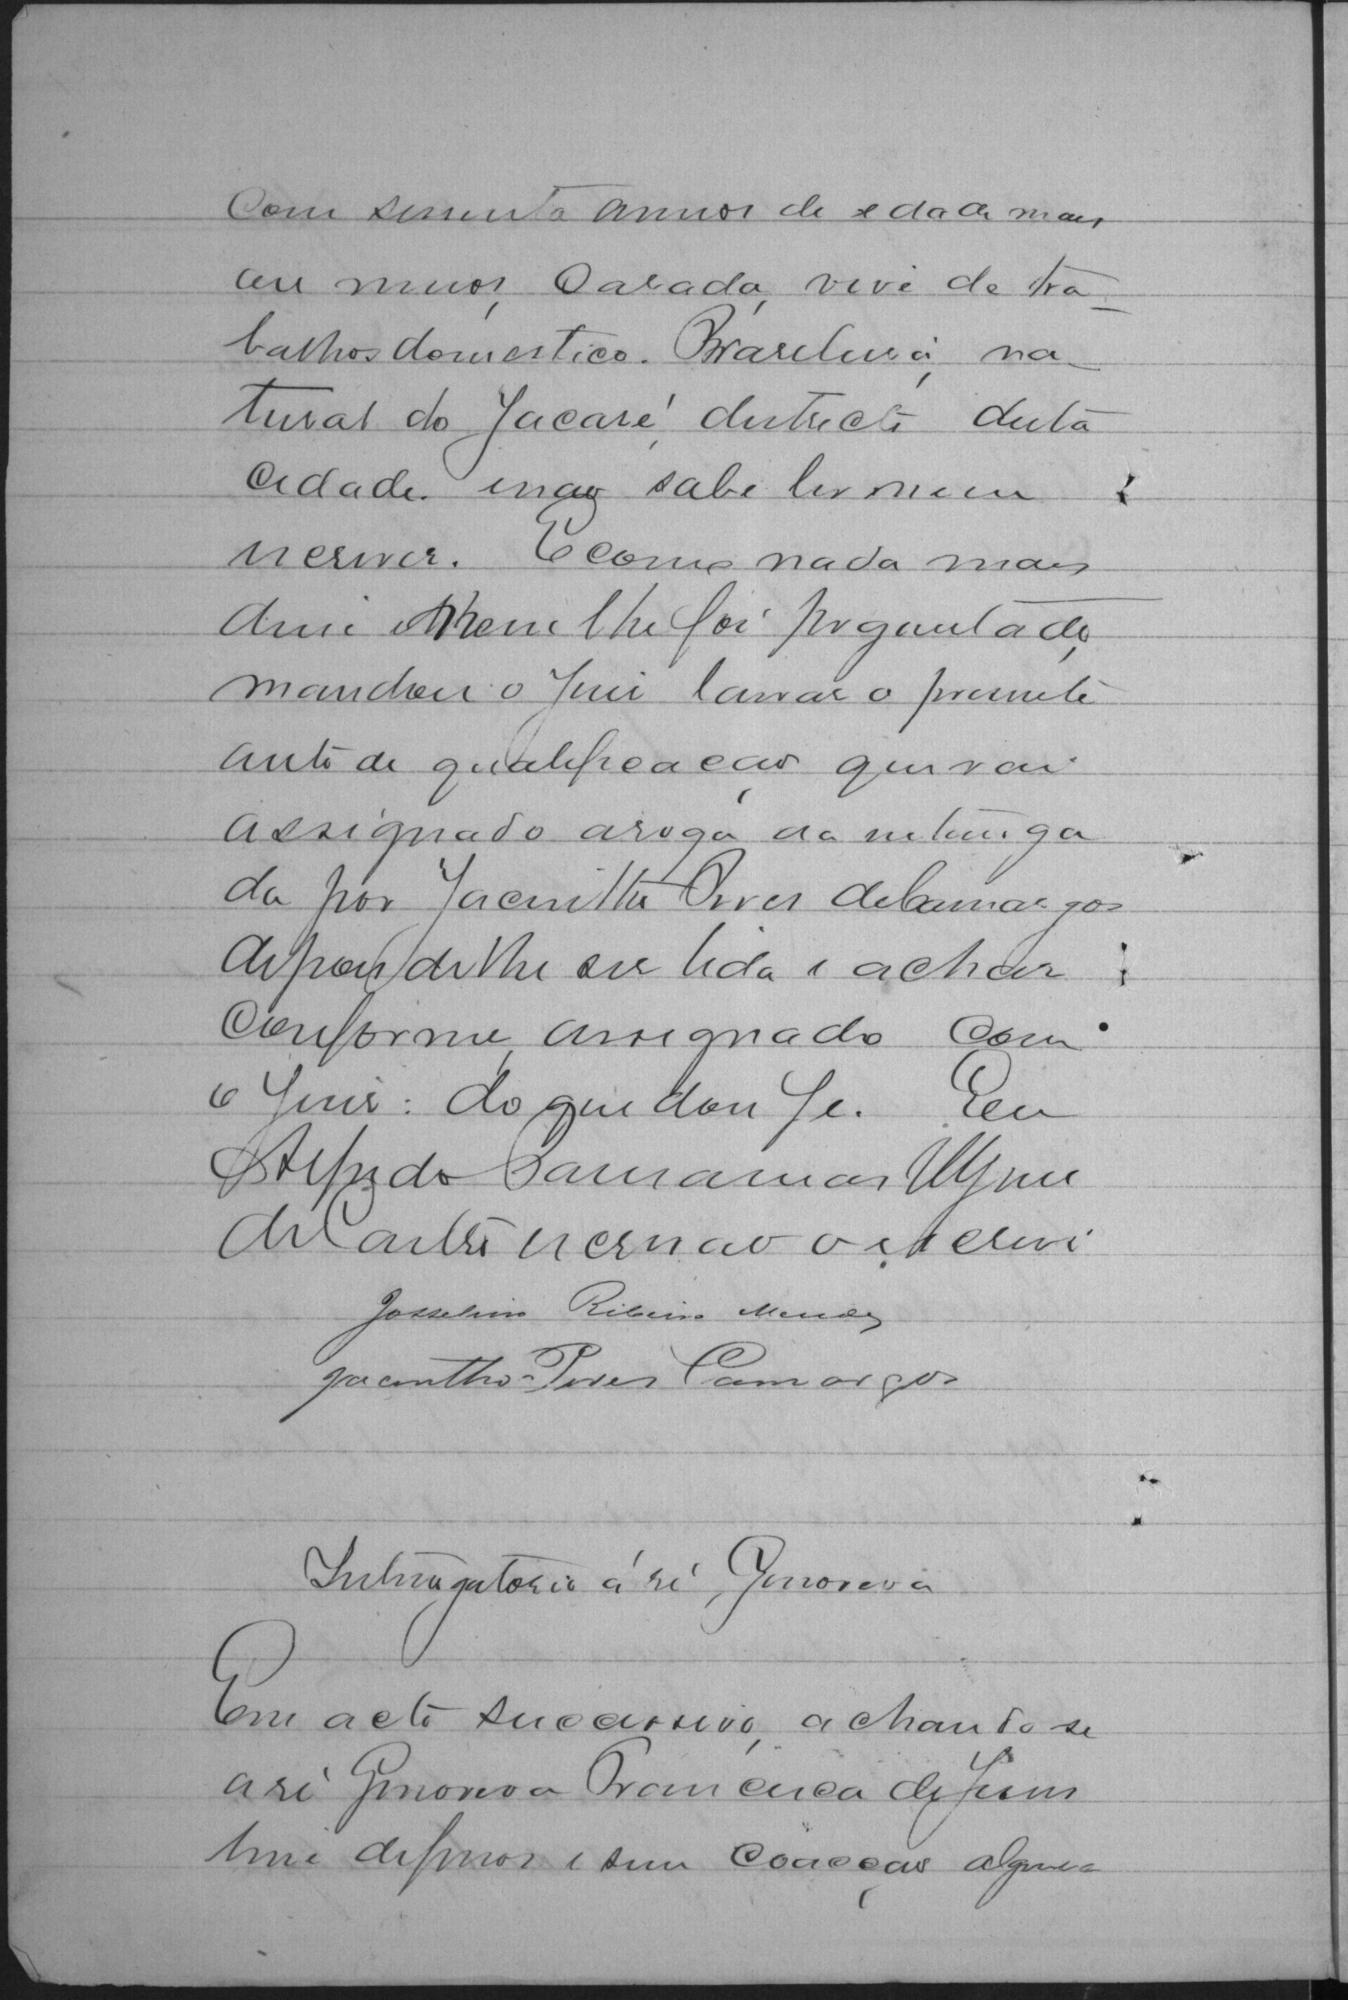 Com sessenta annos de edade mais
ou menos, Casada, vive de tra-
balhos domestico. Brasileira, na-
tural do Jacaré, districto desta
cidade. enão sabe ler nem
escrever. E como nada mais
disse nem lhe foi perguntado,
mandou o Juiz lavrar o presente
auto de qualificação que vai
assignado arogo da interroga
da por Jacintho Pires de Camargos
depois de lhe ser lida e achar
conforme, assignado com
o Juiz: do que dou fe. Eu
Alfredo
de Castro escrivão o escrevi
Josselino Ribeiro Mendes
Jacintho Pires Camargos
Interrogatorio á ré, Genoveva
Em acto successivo, achando se
a ré Genoveva Francisca de Jesus
livre de ferros e sem coacção alguma